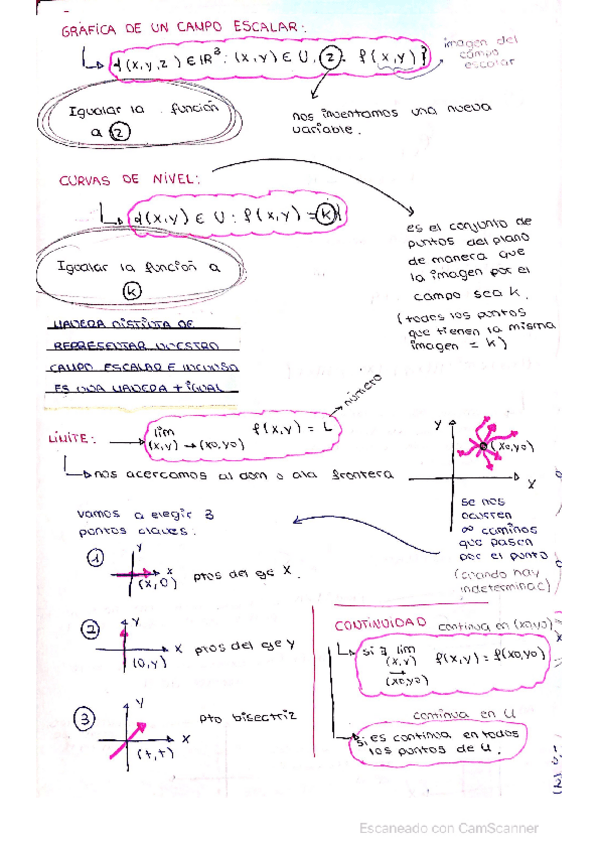 GRÁFICA DE UN CAMPO ESCALAR:
{(x,y,z) ∈ IR³: (x,y) ∈ U, z = f(x,y)}
imagen del
campo
escolar
Igualar la función
a z
nos inventamos una nueva
variable.
CURVAS DE NIVEL:
{(x,y) ∈ U : f(x,y) = k}
Igualar la función a
k
es el conjunto de
puntos del plano
de manera que
la imagen por el
campo sea k.
(todos los puntos
que tienen la misma
imagen = k)
MANERA DISTINTA DE
REPRESENTAR NUESTRO
CAMPO ESCALAR E INCLUSO
ES UNA MANERA + IGUAL
número
LÍMITE:
lim f(x,y) = L
(x,y) → (x0,y0)
nos acercamos al dom o a la frontera
y
(x0,y0)
x
vamos a elegir 3
puntos claves:
se nos
ocurren
∞ caminos
que pasen
por el punto
(cuando hay
indeterminac)
1
y
x
(x,0)
ptos del eje x.
2
y
x
(0,y)
ptos del eje y
3
y
x
(t,t)
pto bisectriz
CONTINUIDAD continua en (x0,y0)
si ∃ lim f(x,y) = f(x0,y0)
(x,y)
→
(x0,y0)
continua en U
si es continua en todos
los puntos de U.
Escaneado con CamScanner